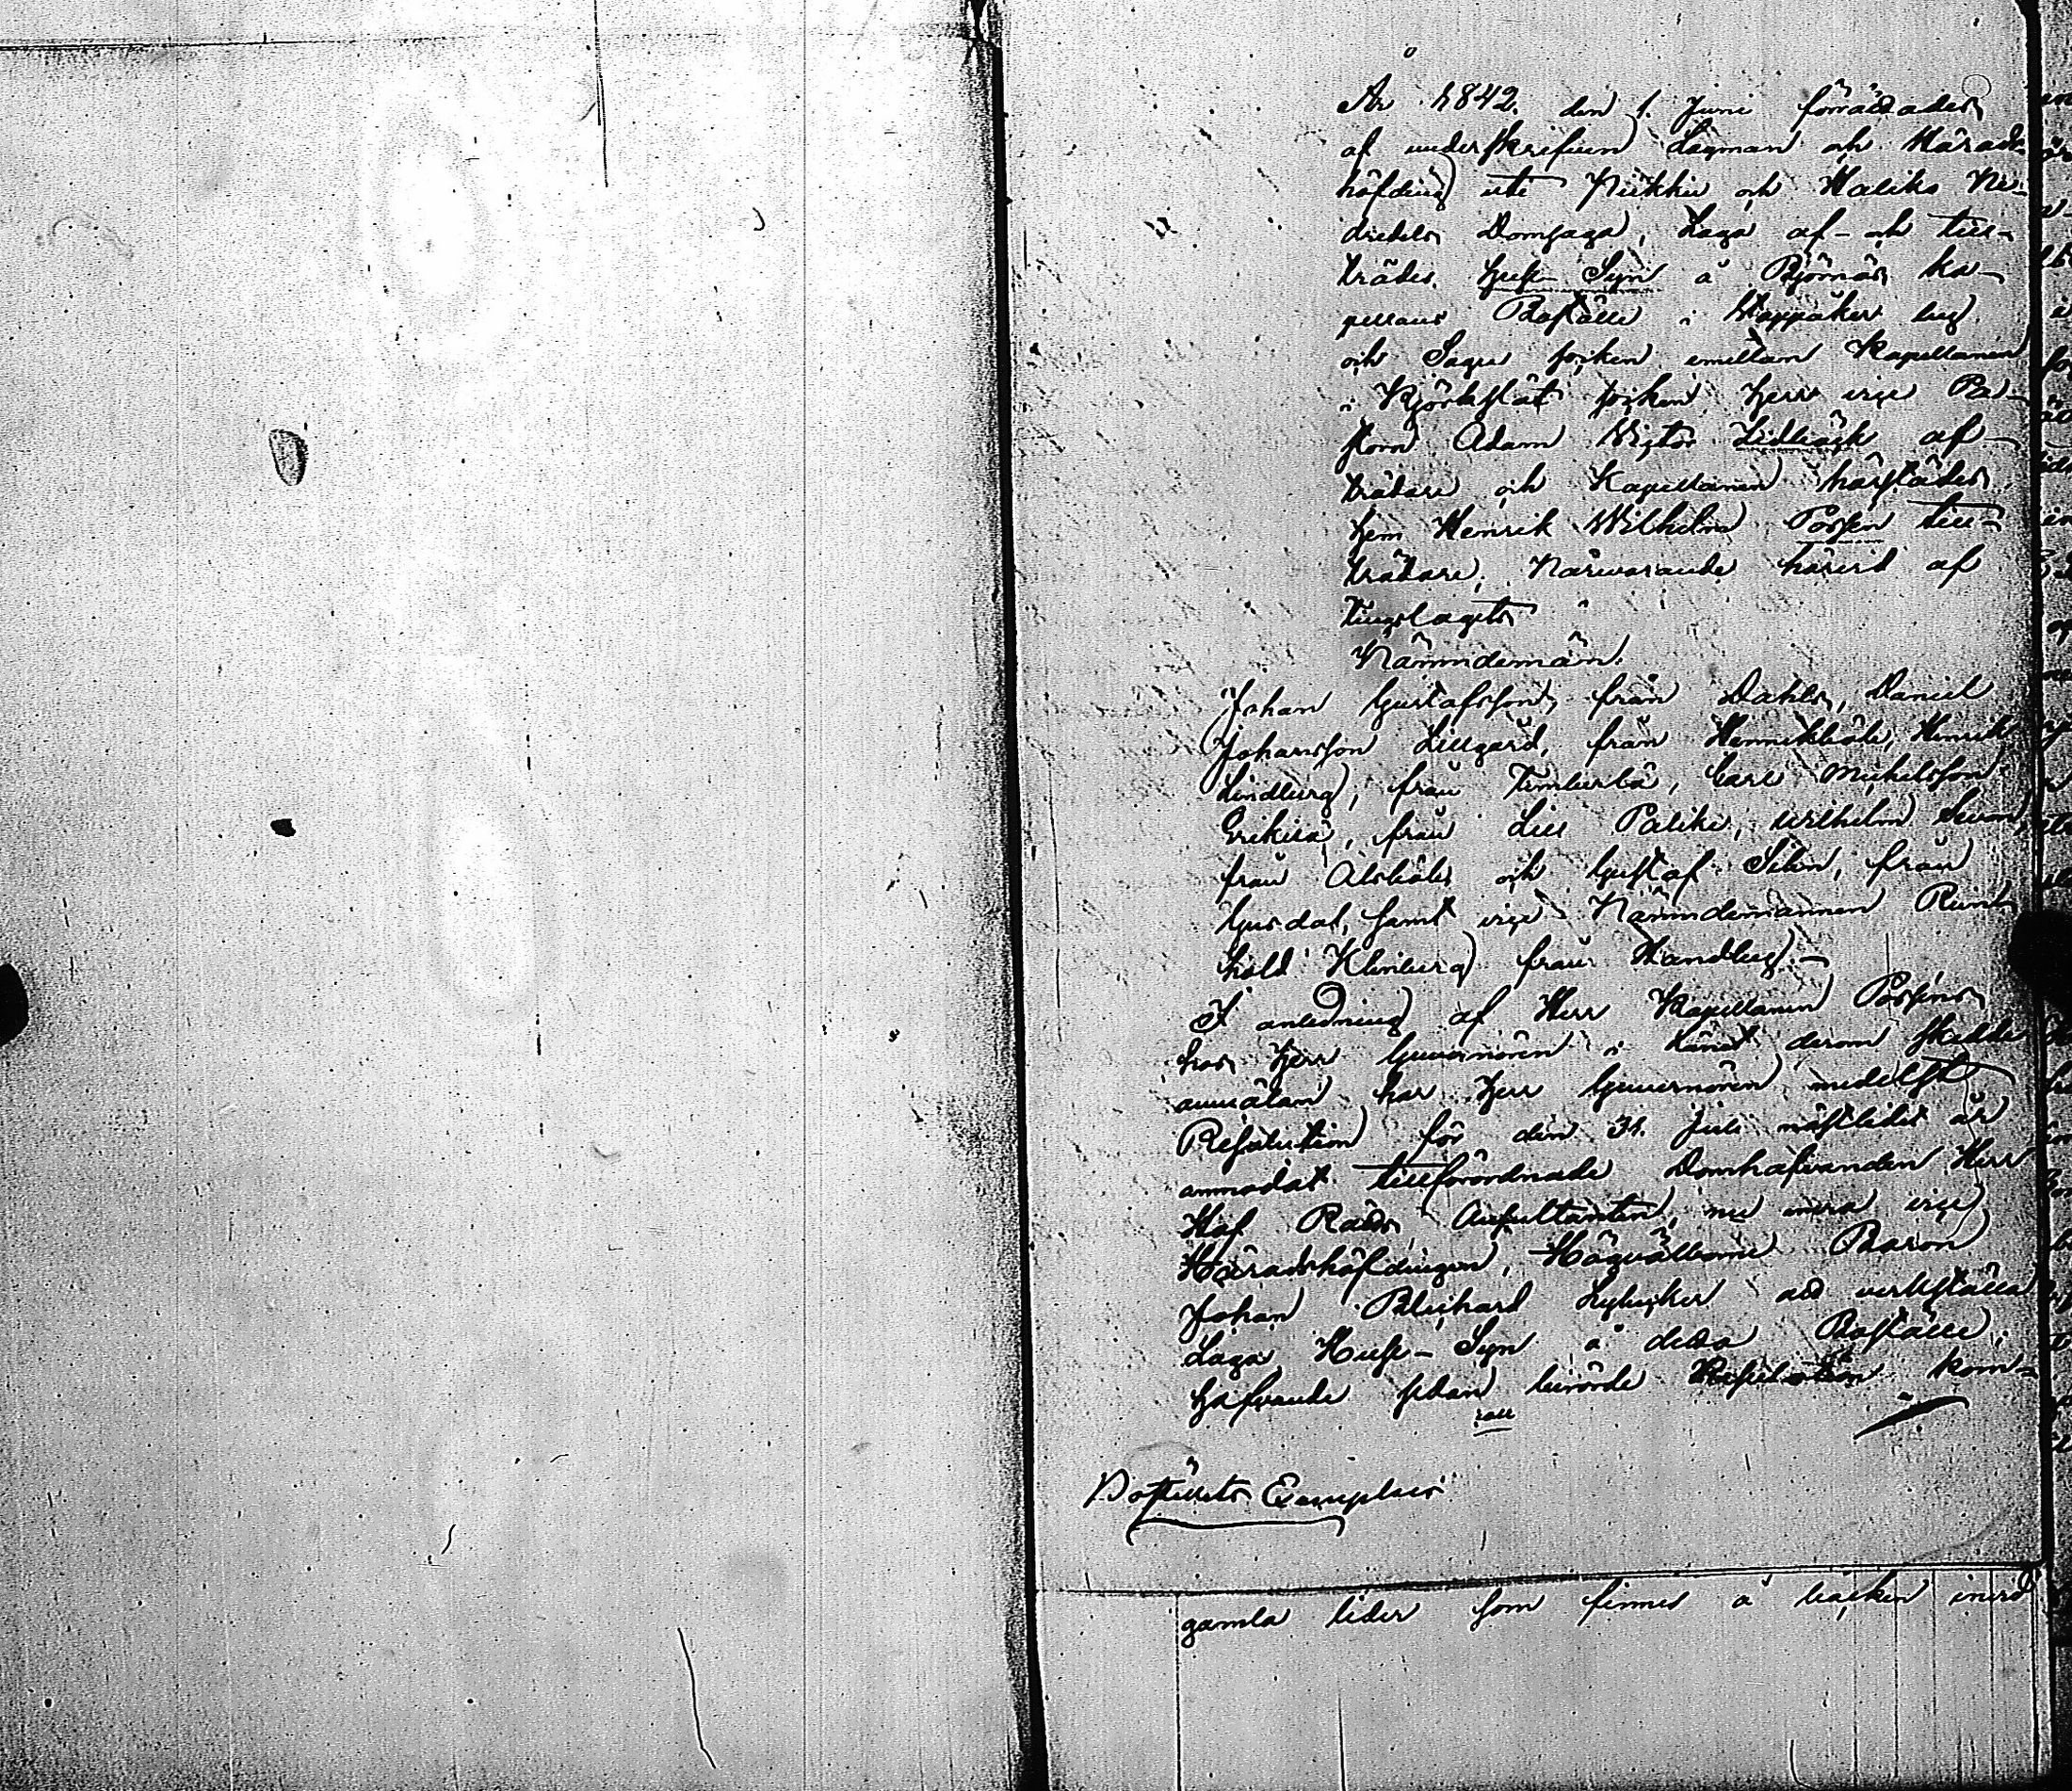 År 1842. den 1. Juni förrättades
af underskrifven Lagman och Härads-
höfding uti Pickkie och Haliko Ne-
dredels Domsaga, Laga af- och till-
trädes Huse Syn å Björnäs ka-
pellans Boställe i Koppåker by
och Sagu socken emellan Kapellanen
i Kyrkslät socken Herr vice Pa-
storn Adam Victor Lidbäck af-
trädare och Kapellanen härstädes
Herr Henrik Wilhelm Possén till-
trädare, Närvarande härvid af
Tingslagets
Nämndemän.
Johan Gustafsson, från Dahls, Daniel
Johansson Lillgård, från Hennikböle, Henrik
Lindberg, från Timberbä, Carl Michelsson
Erikisä, från Lill Paliki, Wilhelm
från Alsböle och Gustaf Silén, från
Gusdal, samt vice Nämndemannen Rein-
hold Klinberg från Kandby.-
I anledning af Herr Kapellanen Posséns
hos Herr Guvernören i Länet derom skedde
anmälan har Herr Guvernören medelst
Resolution för den 31. Juli nästlidet år
anmodat tillförordnade Domhafvanden Herr
Hof Rätts Auskultanten, nu mera vice
Häradshöfdingen, Högvälborne Baron
Johan Richard Rybecker att verkställa
Laga Huse-Syn å detta Boställe;
Hafvande sedan berörde Resolution kom-
Boställets Exemplar
gamla lider som finnes å backen invid